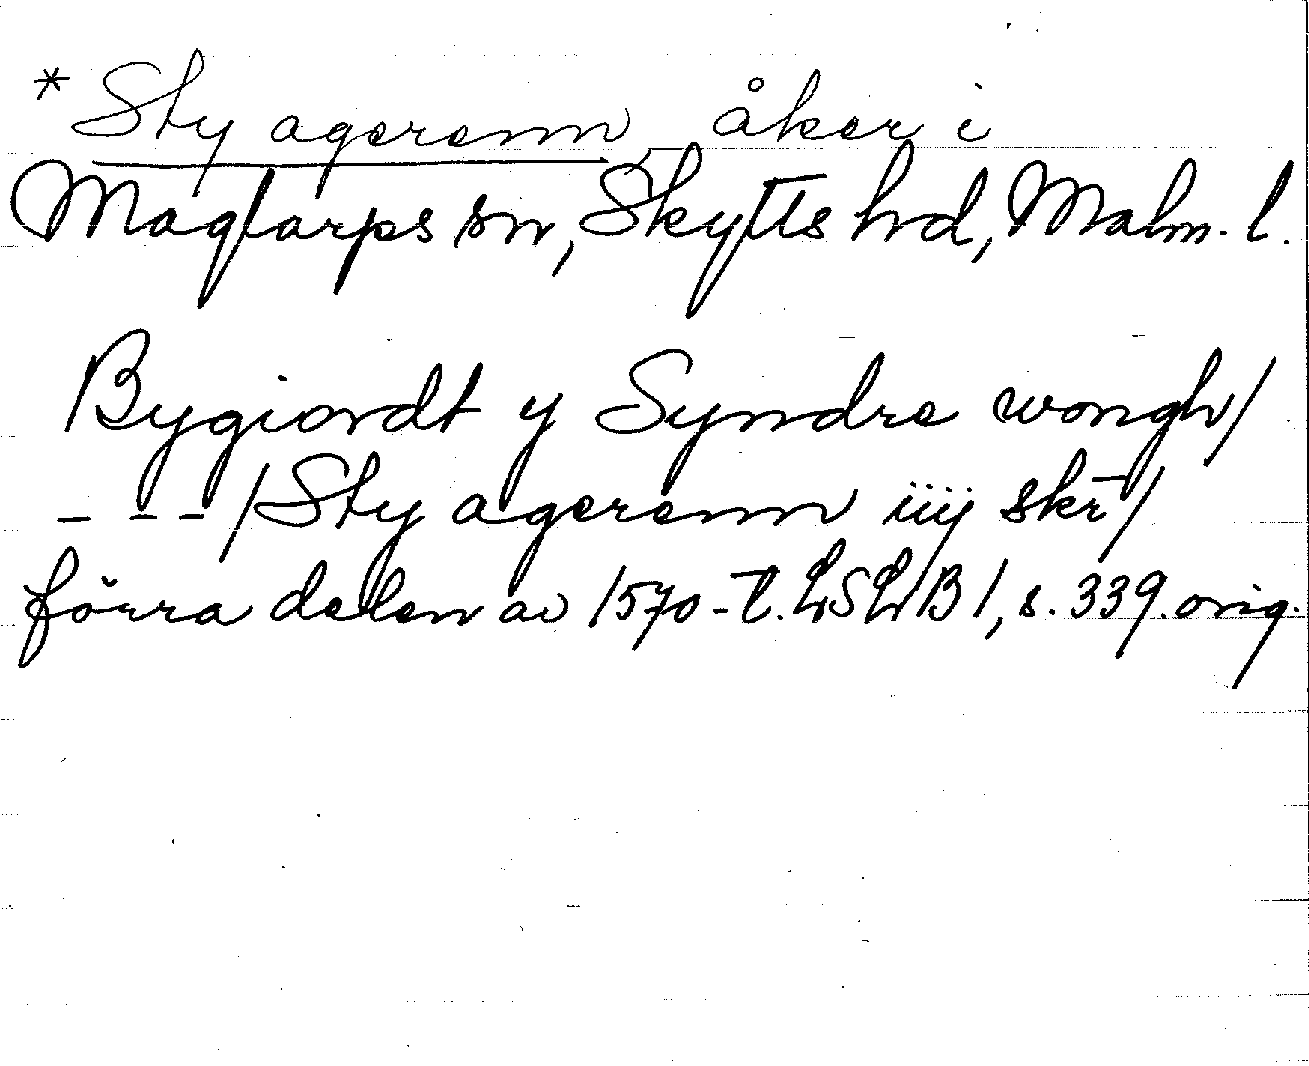 * Sty agerenn, åker i
Maglarps sn, Skytts hd, Malm. l.
Bygiordt y Syndre wongh/
_ _ _ /Sty agerenn iiij skr/
förra delen av 1570-t. LSLB1, s. 339. orig.